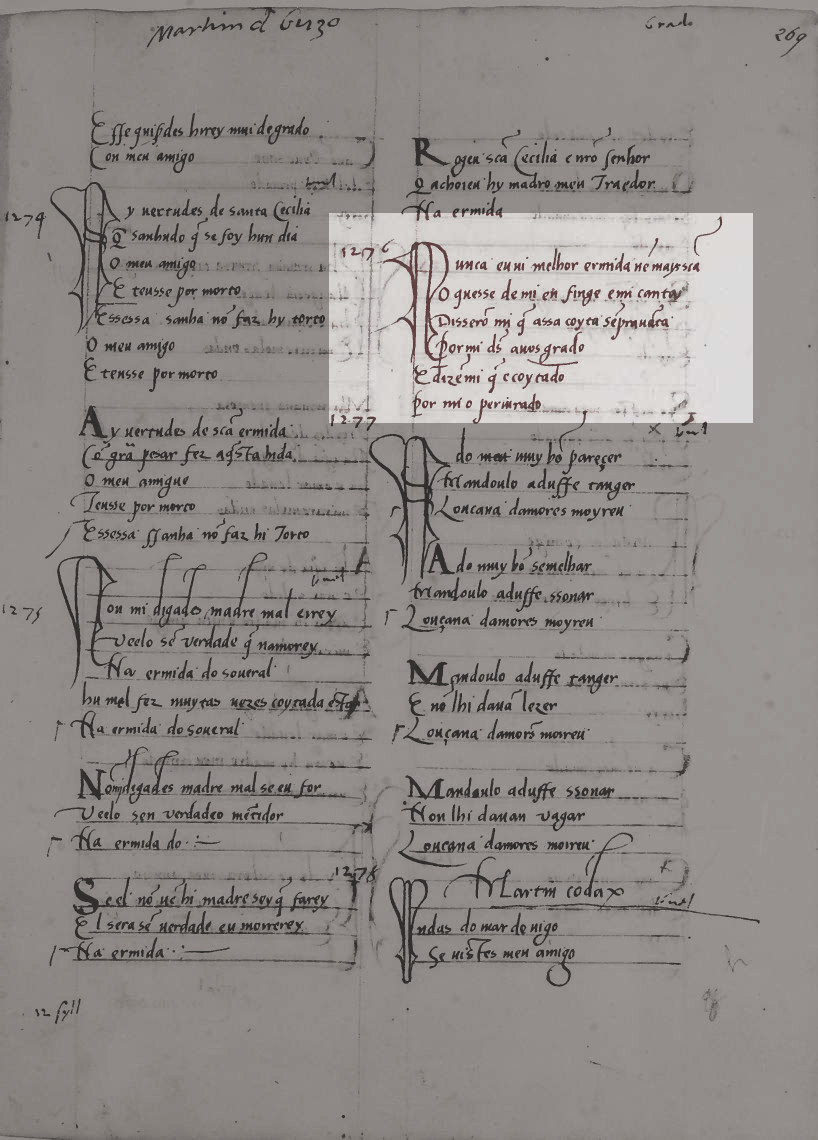 Martim d Girzo
Grado
269
Esse quiserdes hirrey mui degrado
Con meu amigo
1274
Ay uertudes de santa Cecilia
Q̃ sanhudo q̃ se foy hun dia
O meu amigo
E tensse por morto
Essessa sanha nõ faz hy torto
O meu amigo
E tensse por morto
Ay uertudes de scã ermida
Cõ grã pesar fez aq̃sta hida
O meu amigue
Tensse por morto
Essessa ssanha nõ faz hi Torto
1275
Non mi digades madre mal eirey
Veelo sẽ verdade q̃ namorey
Na ermida do soueral
hu mel fez muytas uezes coytada estar
Na ermida do soueral
Nõmi degades madre mal se eu for
Veelo sen verdadeo mẽtidor
Na ermida do
Se el nõ uẽ hi madre sey q̃ farey
El sera sẽ verdade eu morrerey
Na ermida
12 syll
Rogeu scã Cecilia e nrõ senhor
Q achoieu hy madro meu Traedor
Na ermida
1276
Nunca eu ui melhor ermida nẽ mays scã
O quesse de mi en finge e mi canta
Disserõ mi q̃ assa coyta sẽpravãta
Por mi d̃s auos grado
E dizẽ mi q̃ e coytado
Por mi o periurado
1277
Ado muy bõ pareçer
Mandoulo aduffe tanger
Louçana damores moyreu
Ado muy bõ semelhar
Mandoulo aduffe ssonar
Louçana damores moyreu
Mandoulo aduffe tanger
E nõ lhi dauã lezer
Louçana damors moireu
Mandoulo aduffe ssonar
Non lhi dauan vagar
Louçana damores moireu
Martin codax
1278
Ondas do mar de uigo
Se uistes meu amigo